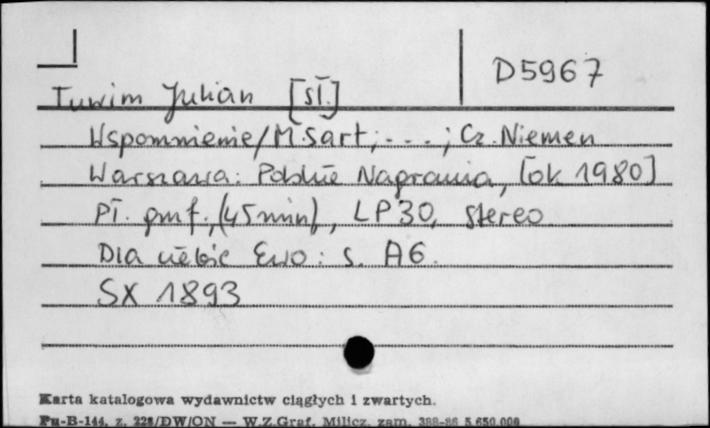 D5967
Tuwim Julian [sł.]
Wspomnienie/M.Sart; - - - ; Cz. Niemen
Warszawa: Polskie Nagrania, [ok 1980]
Pł. gmf., (45 min), LP 30, stereo
Dla ciebie Ewo: s. A6.
SX 1893
Karta katalogowa wydawnictw ciągłych i zwartych.
Pu-B-144, z. 228/DW/ON — W.Z.Graf. Milicz, zam. 388-86 5.650.000